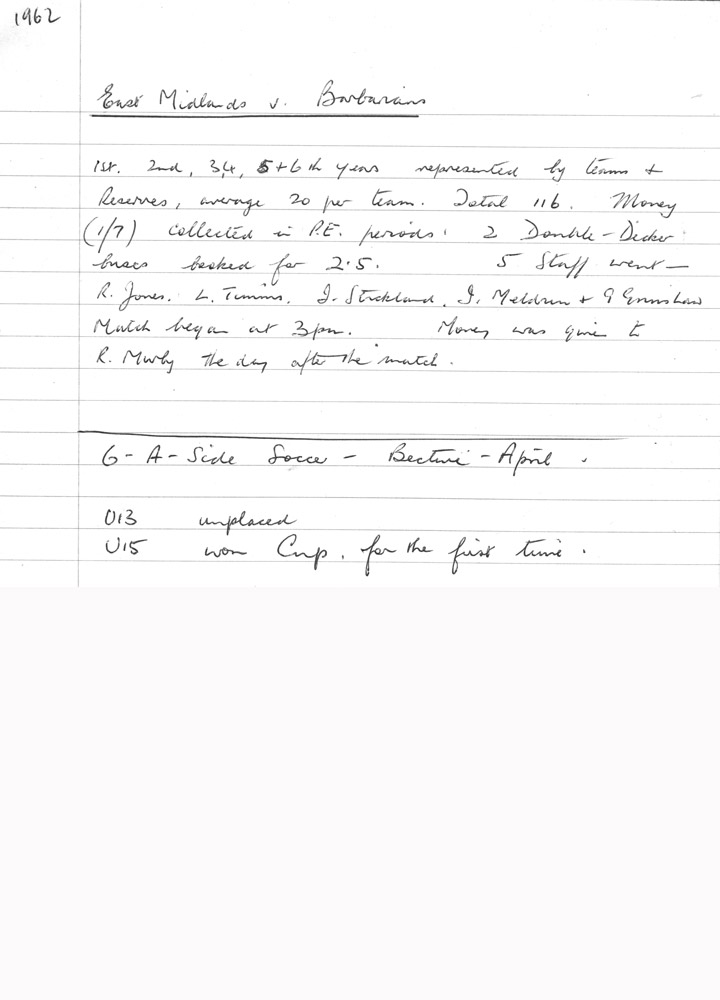 1962
East Midlands v. Barbarians
1st. 2nd, 3, 4, 5 + 6th years represented by teams +
Reserves, average 20 per team. Total 116. Money
(1/7) collected in P.E. periods. 2 Double-Decker
buses booked for 2.5. 5 Staff went —
R. Jones. L. Timms. J. Strickland. I. Meldrum + G Grimshaw
Match began at 3pm. Money was given to
R. the day after the match.
6-A-Side Soccer - - April.
U13 unplaced
U15 won Cup. for the first time.